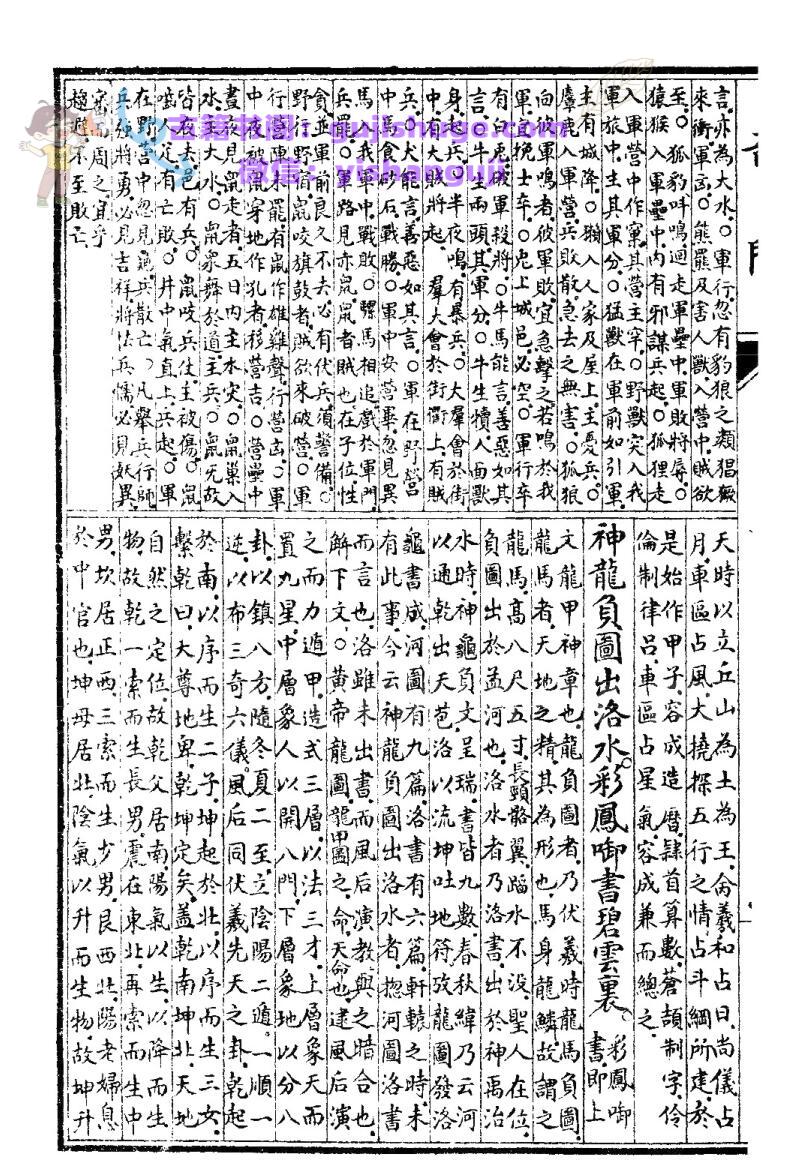 言亦為大水○軍行忽有豹狼之類猖獗
來衝軍凶○熊羆及害人獸入營中賊欲
至○狐豹呌鳴迴走軍壘中軍敗將辱○
猿猴入軍壘中內有邪謀兵起○狐狸走
入軍營中作窠其營主穽○野獸突入我
軍旅中生其軍分○猛獸在軍前如引軍
主有城降○獺入人家及屋上主憂兵○
麞鹿入軍營兵敗散急去之無害○狐狼
向彼軍鳴者彼軍敗宜急擊之若鳴於我
軍宜挽士卒○兔上城邑必空○軍行卒
有白兎破軍殺將○牛馬能言善惡如其
言○牛生兩頭其軍分○牛生犢人面獸
身起兵○牛半夜鳴有暴兵○犬羣會於街
中有大賊將起 羣犬會於街衢上有賊
兵○犬能言善惡如其言○軍在野營
中馬食砂石戰勝○軍中安營畢忽見異
馬入我軍中戰敗○騾馬相追戲於軍門
兵罷○軍路見亦鼠鼠者賊也在子位性
貪並軍前良久不去必有伏兵須警備○
野行野宿鼠咬旗鼓者賊欲來破營○軍
行營陣未罷有鼠作雄雞聲行營凶○軍
中夜被鼠穿地作孔者移營吉○營壘中
晝夜見鼠走者五日內主水灾○鼠巢入
水主大水○鼠眾舞於道主兵○鼠旡故
皆夜去邑有兵○鼠咬兵仗主被傷○鼠
嚙定有敗亡○井中氣直上兵起○軍
在野營中忽見龜兵散亡○凡舉兵行師
兵強將勇必見吉祥將怯兵懦必見妖異
審而周之宜乎
趨避不至敗亡
天時以立丘山為土為王侖羲和占日尚儀占
月車區占風大撓探五行之情占斗綱所建於
是始作甲子容成造曆隸首算數蒼頡制字伶
倫制律呂車區占星氣容成兼而總之
神龍負圖出洛水彩鳳啣書碧雲裏 彩鳳啣書即上
文龍甲神章也龍負圖者乃伏羲時龍馬負圖
龍馬者天地之精其為形也馬身龍鱗故謂之
龍馬高八尺五寸長頸骼翼蹈水不沒聖人在位
負圖出於孟河也洛水者乃洛書出於神禹治
水時神龜負文呈瑞書皆九數春秋緯乃云河
以通乾出天苞洛以流坤吐地符攷龍圖發洛
龜書成河圖有九篇洛書有六篇軒轅之時未
有此事今云神龍負圖出洛水者揔河圖洛書
而言也洛雖未出書而風后演教與之暗合也
解下文○黃帝龍圖龍甲圖之命天命也逮風后演
之而力遁甲造式三層以法三才上層象天而
置九星中層象人以開八門下層象地以分八
卦以鎮八方隨冬夏二至立陰陽二遁一順一
逆以布三奇六儀風后同伏羲先天之卦乾起
於南以序而生二子坤起於北以序而生三女
繫乾曰大尊地卑乾坤定矣蓋乾南坤北天地
自然之定位故乾父居南陽氣以生以降而生
物故乾一索而生長男震在東北再索而生中
男坎居正西三索而生少男艮西北陽老婦息
於中官也坤母居北陰氣以升而生物故坤升
书籍书测：gujishuge.com
微信：yishanguji